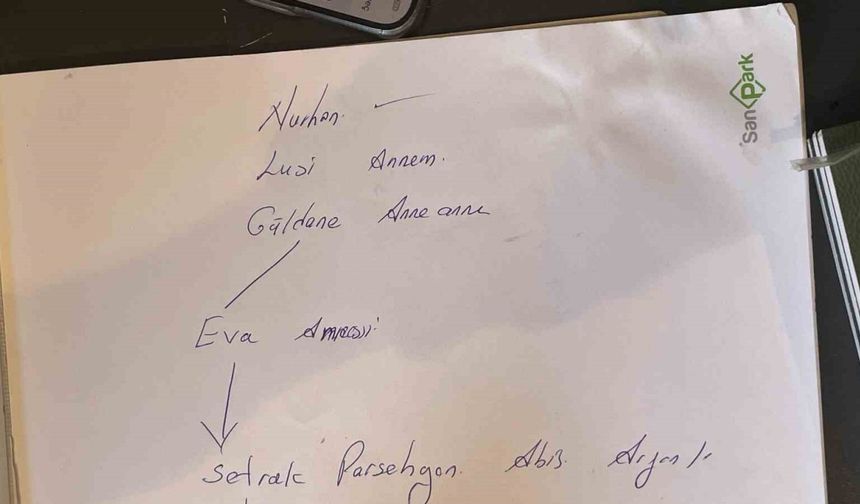 SanPark
Nurhan.
Lusi Annem.
Güldane Anneanne
Eva Annesi
Setrak Parsehyan. Abisi